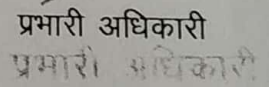 प्रभारी अधिकारी
प्रभारी अधिकारी